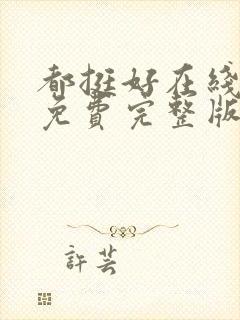 都挺好在綫
免費完整版
許蕓